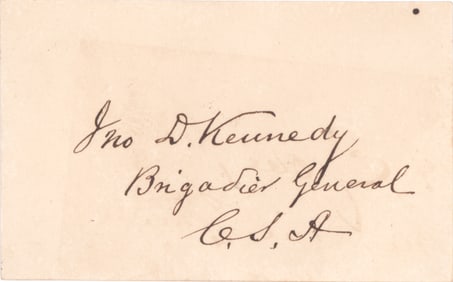 Jno D. Kennedy
Brigadier General
C. S. A